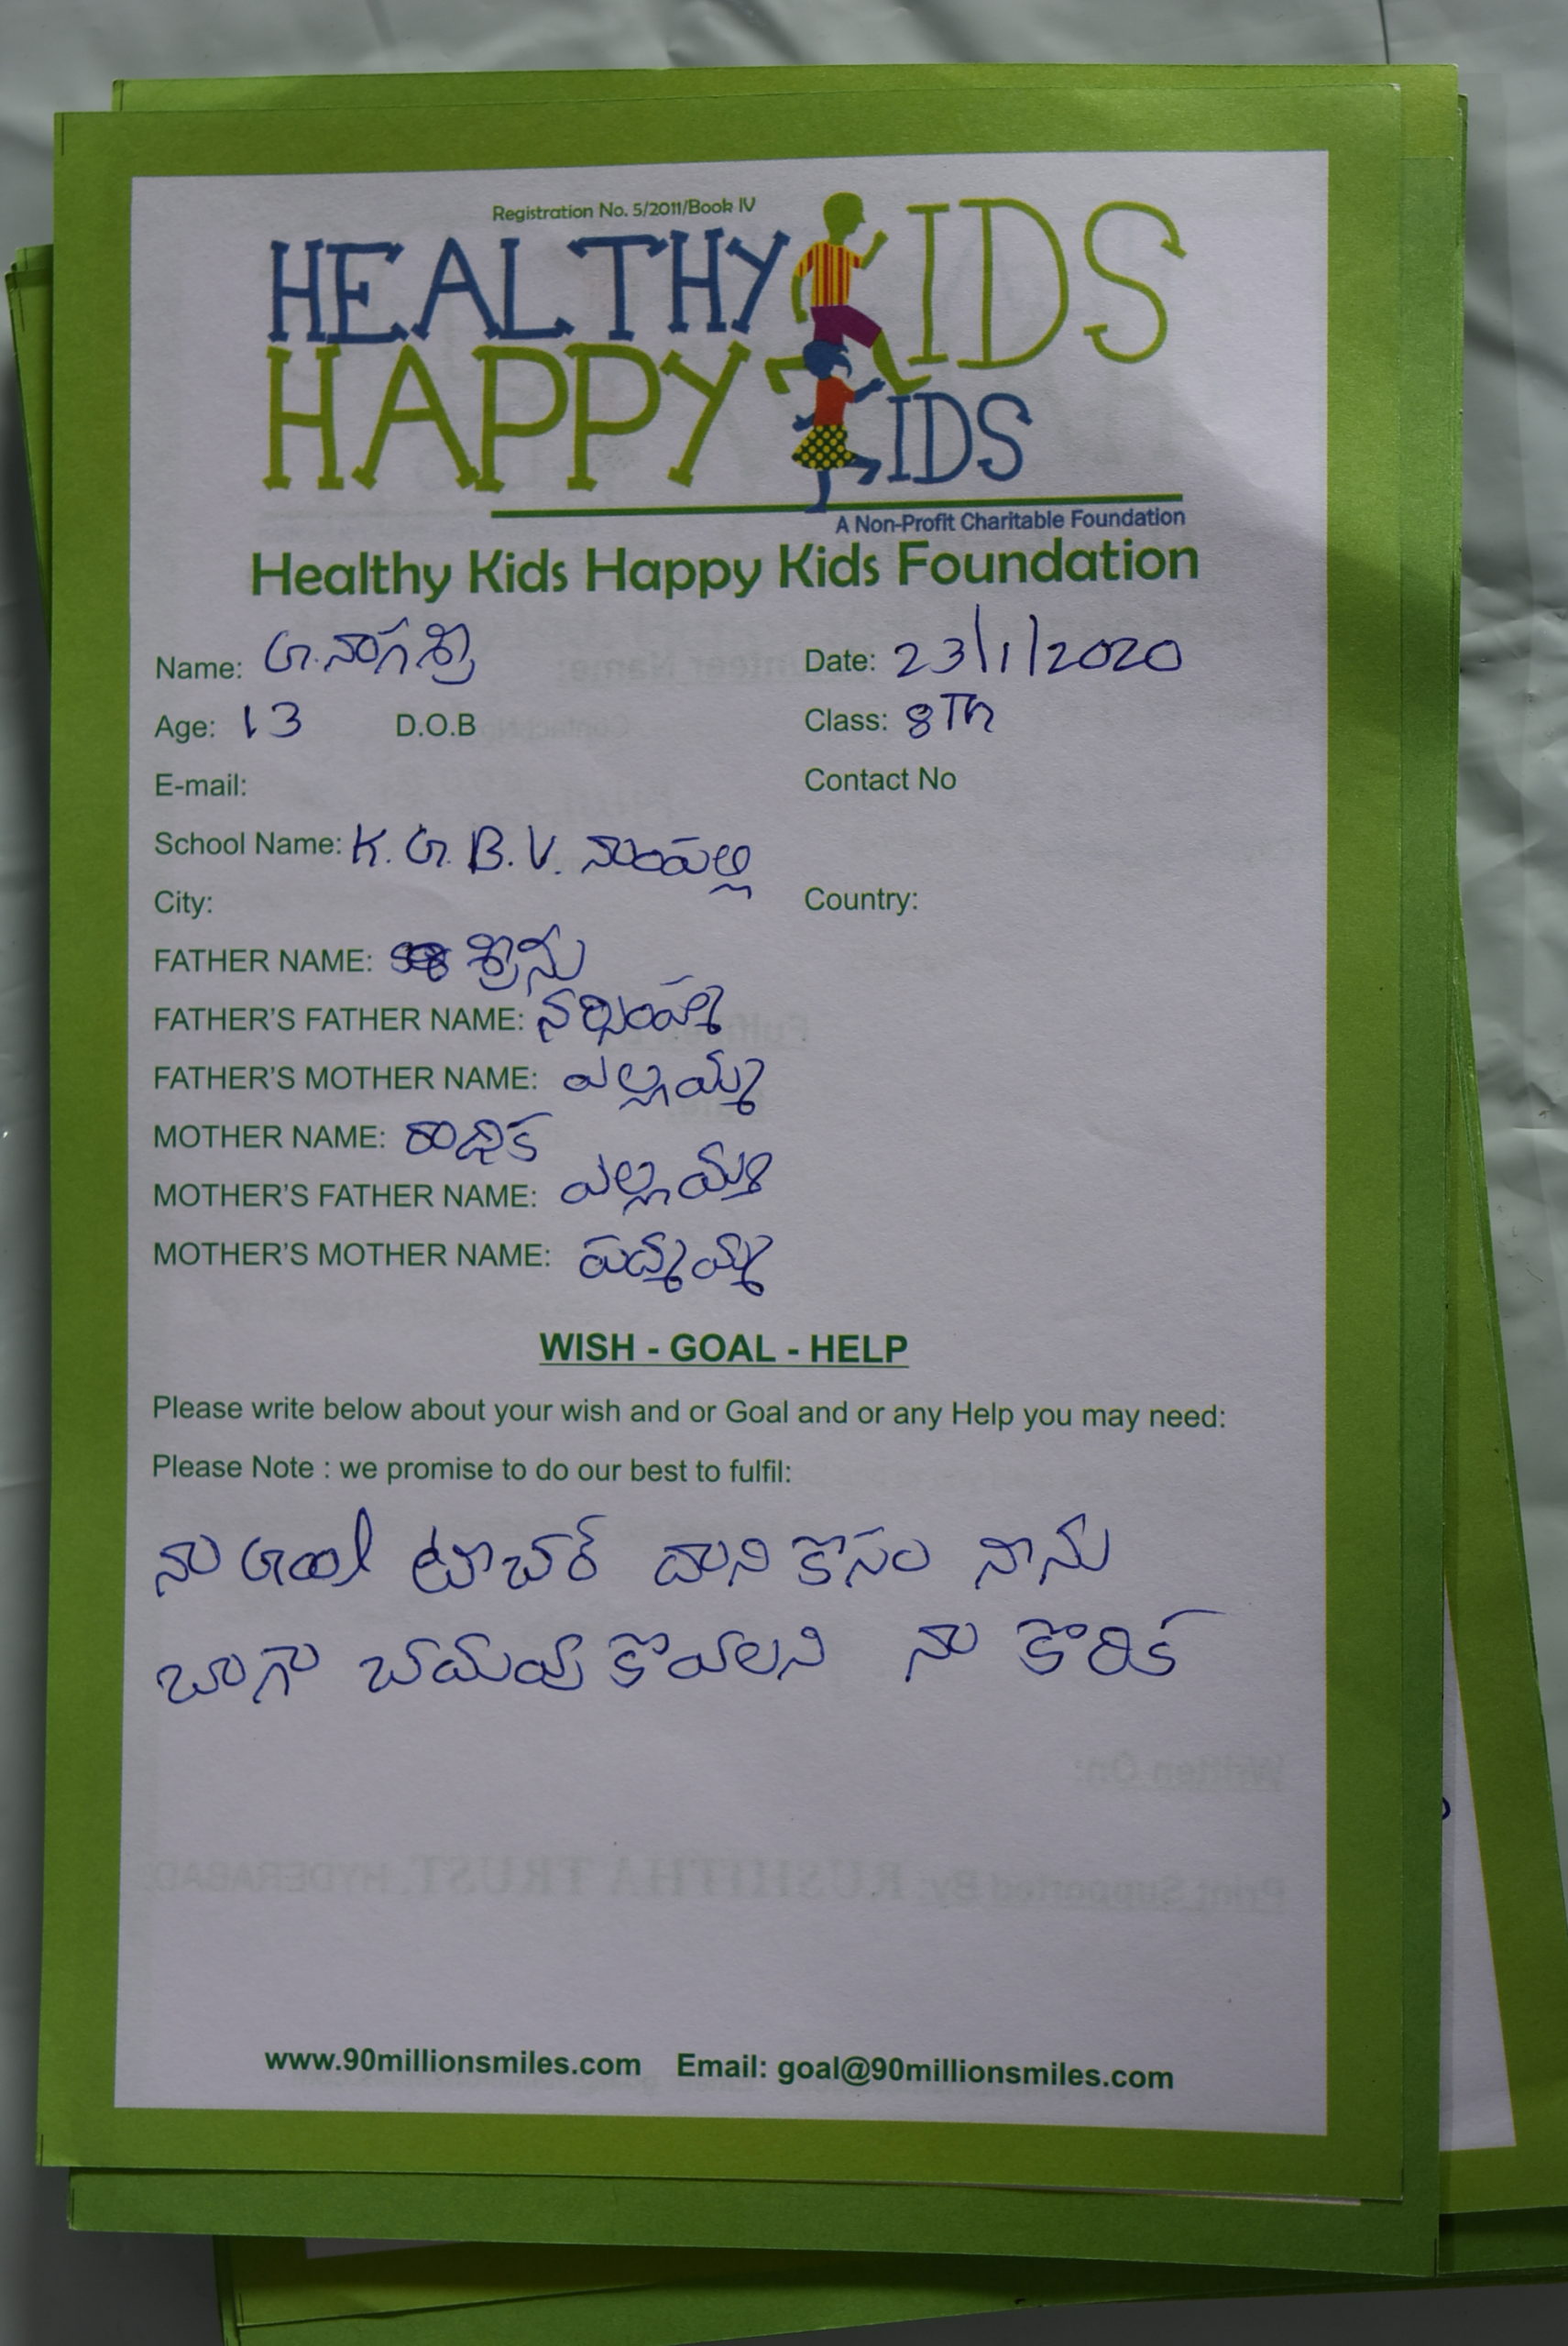 Registration No. 5/2011/Book IV
HEALTHY KIDS
HAPPY KIDS
A Non-Profit Charitable Foundation
Healthy Kids Happy Kids Foundation
Name: G. నాగశ్రీ Date: 23/1/2020
Age: 13 D.O.B Class: 8Th
E-mail: Contact No
School Name: K. G. B. V. నాంపల్లి
City: Country:
FATHER NAME: శ్రీను
FATHER'S FATHER NAME:
FATHER'S MOTHER NAME: ఎల్లమ్మ
MOTHER NAME: రాధిక
MOTHER'S FATHER NAME:
MOTHER'S MOTHER NAME: పద్మమ్మ
WISH - GOAL - HELP
Please write below about your wish and or Goal and or any Help you may need:
Please Note : we promise to do our best to fulfil:
నా Goal టీచర్ దాని కొసం నాను
బాగా చదువు కొవలని నా కొరిక
www.90millionsmiles.com Email: goal@90millionsmiles.com